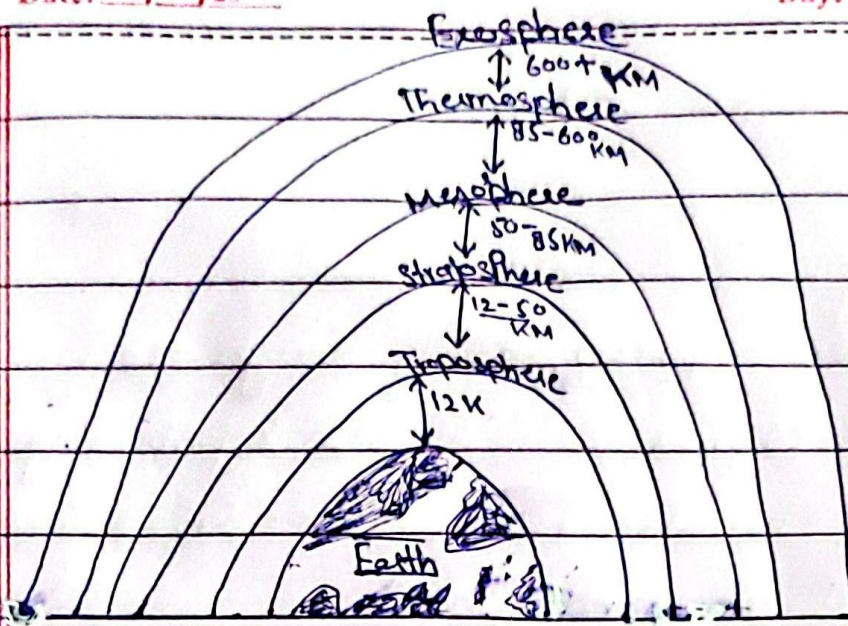 Date:
Exosphere
600+ KM
Thermosphere
85-600
KM
Mesosphere
50-
85KM
Stratosphere
12-50
KM
Troposphere
12K
Earth